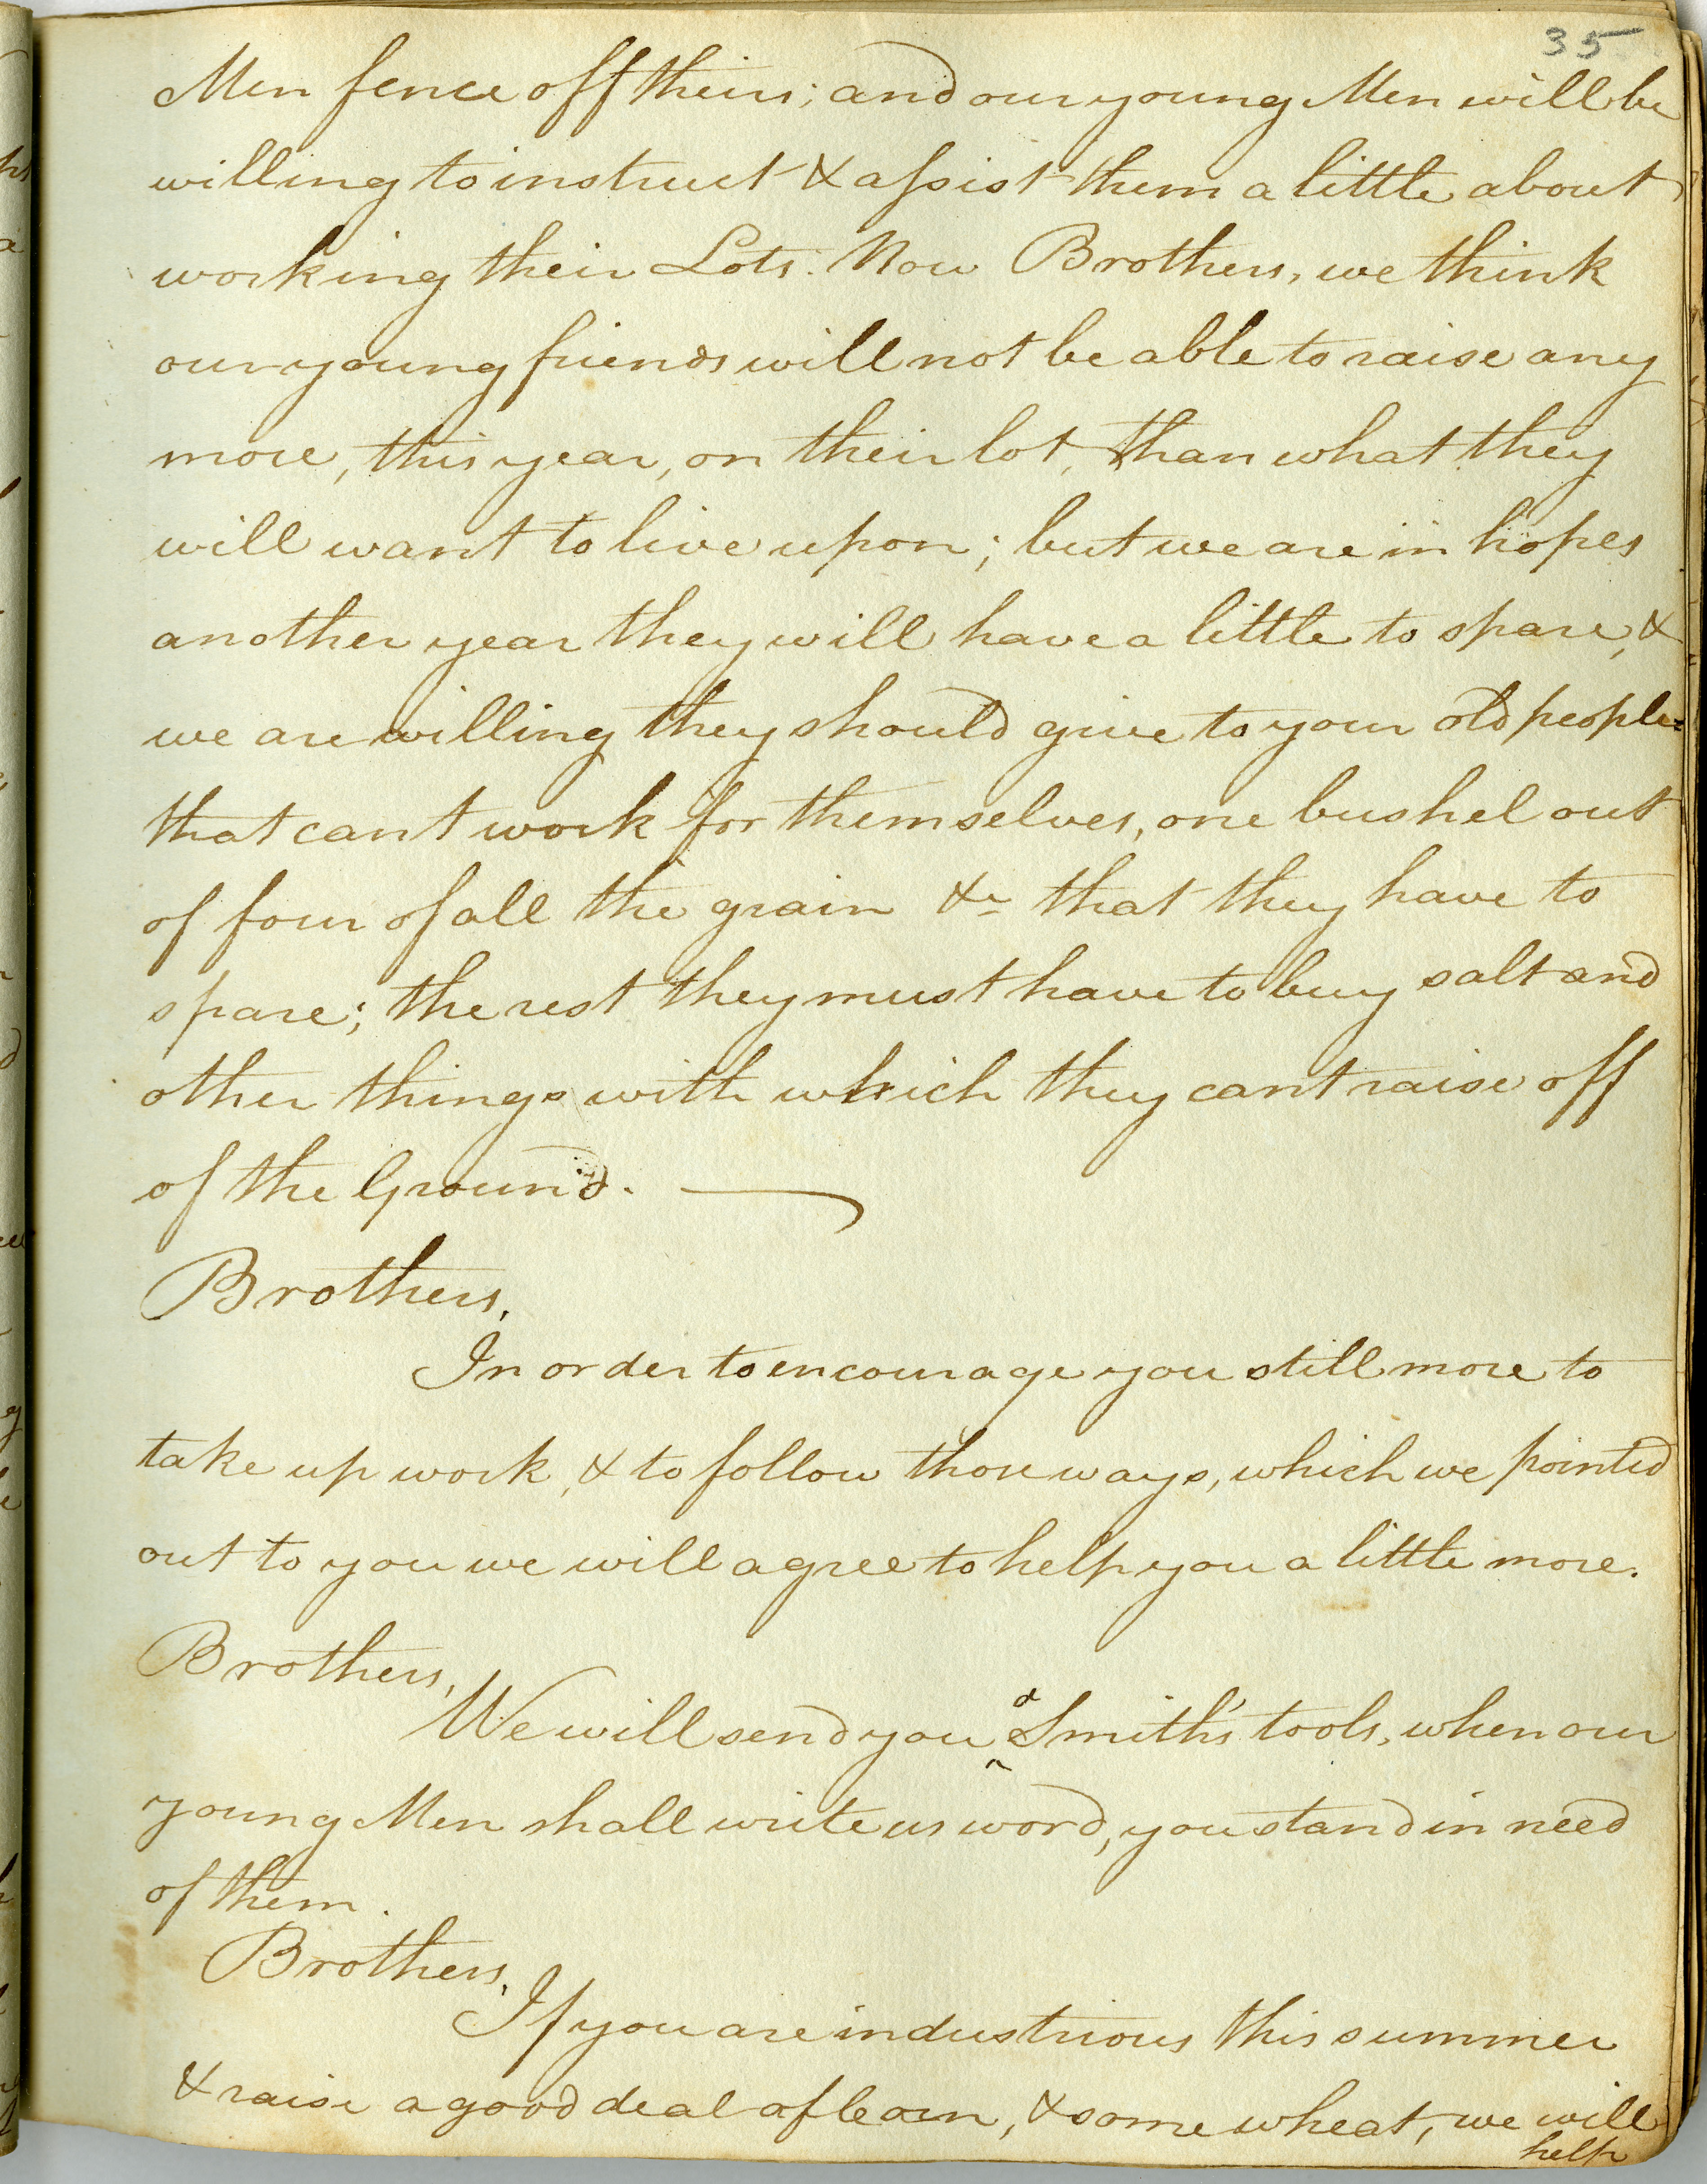 35
Men fence off theirs; and our young Men will be
willing to instruct & assist them a little about
working their Lots. Now Brothers, we think
our young friends will not be able to raise any
more, this year, on their lot, than what they
will want to live upon; but we are in hopes
another year they will have a little to spare, &
we are willing they should give to your old people
that cant work for themselves, one bushel out
of four of all the grain &c that they have to
spare; the rest they must have to buy salt and
other things with which they cant raise off
of the Ground.
Brothers,
In order to encourage you still more to
take up work, & to follow those ways, which we pointed
out to you we will agree to help you a little more.
Brothers,
We will send you a Smith's tools, when our
young Men shall write us word, you stand in need
of them.
Brothers,
If you are industrious this summer
& raise a good deal of Corn, & some wheat, we will
help